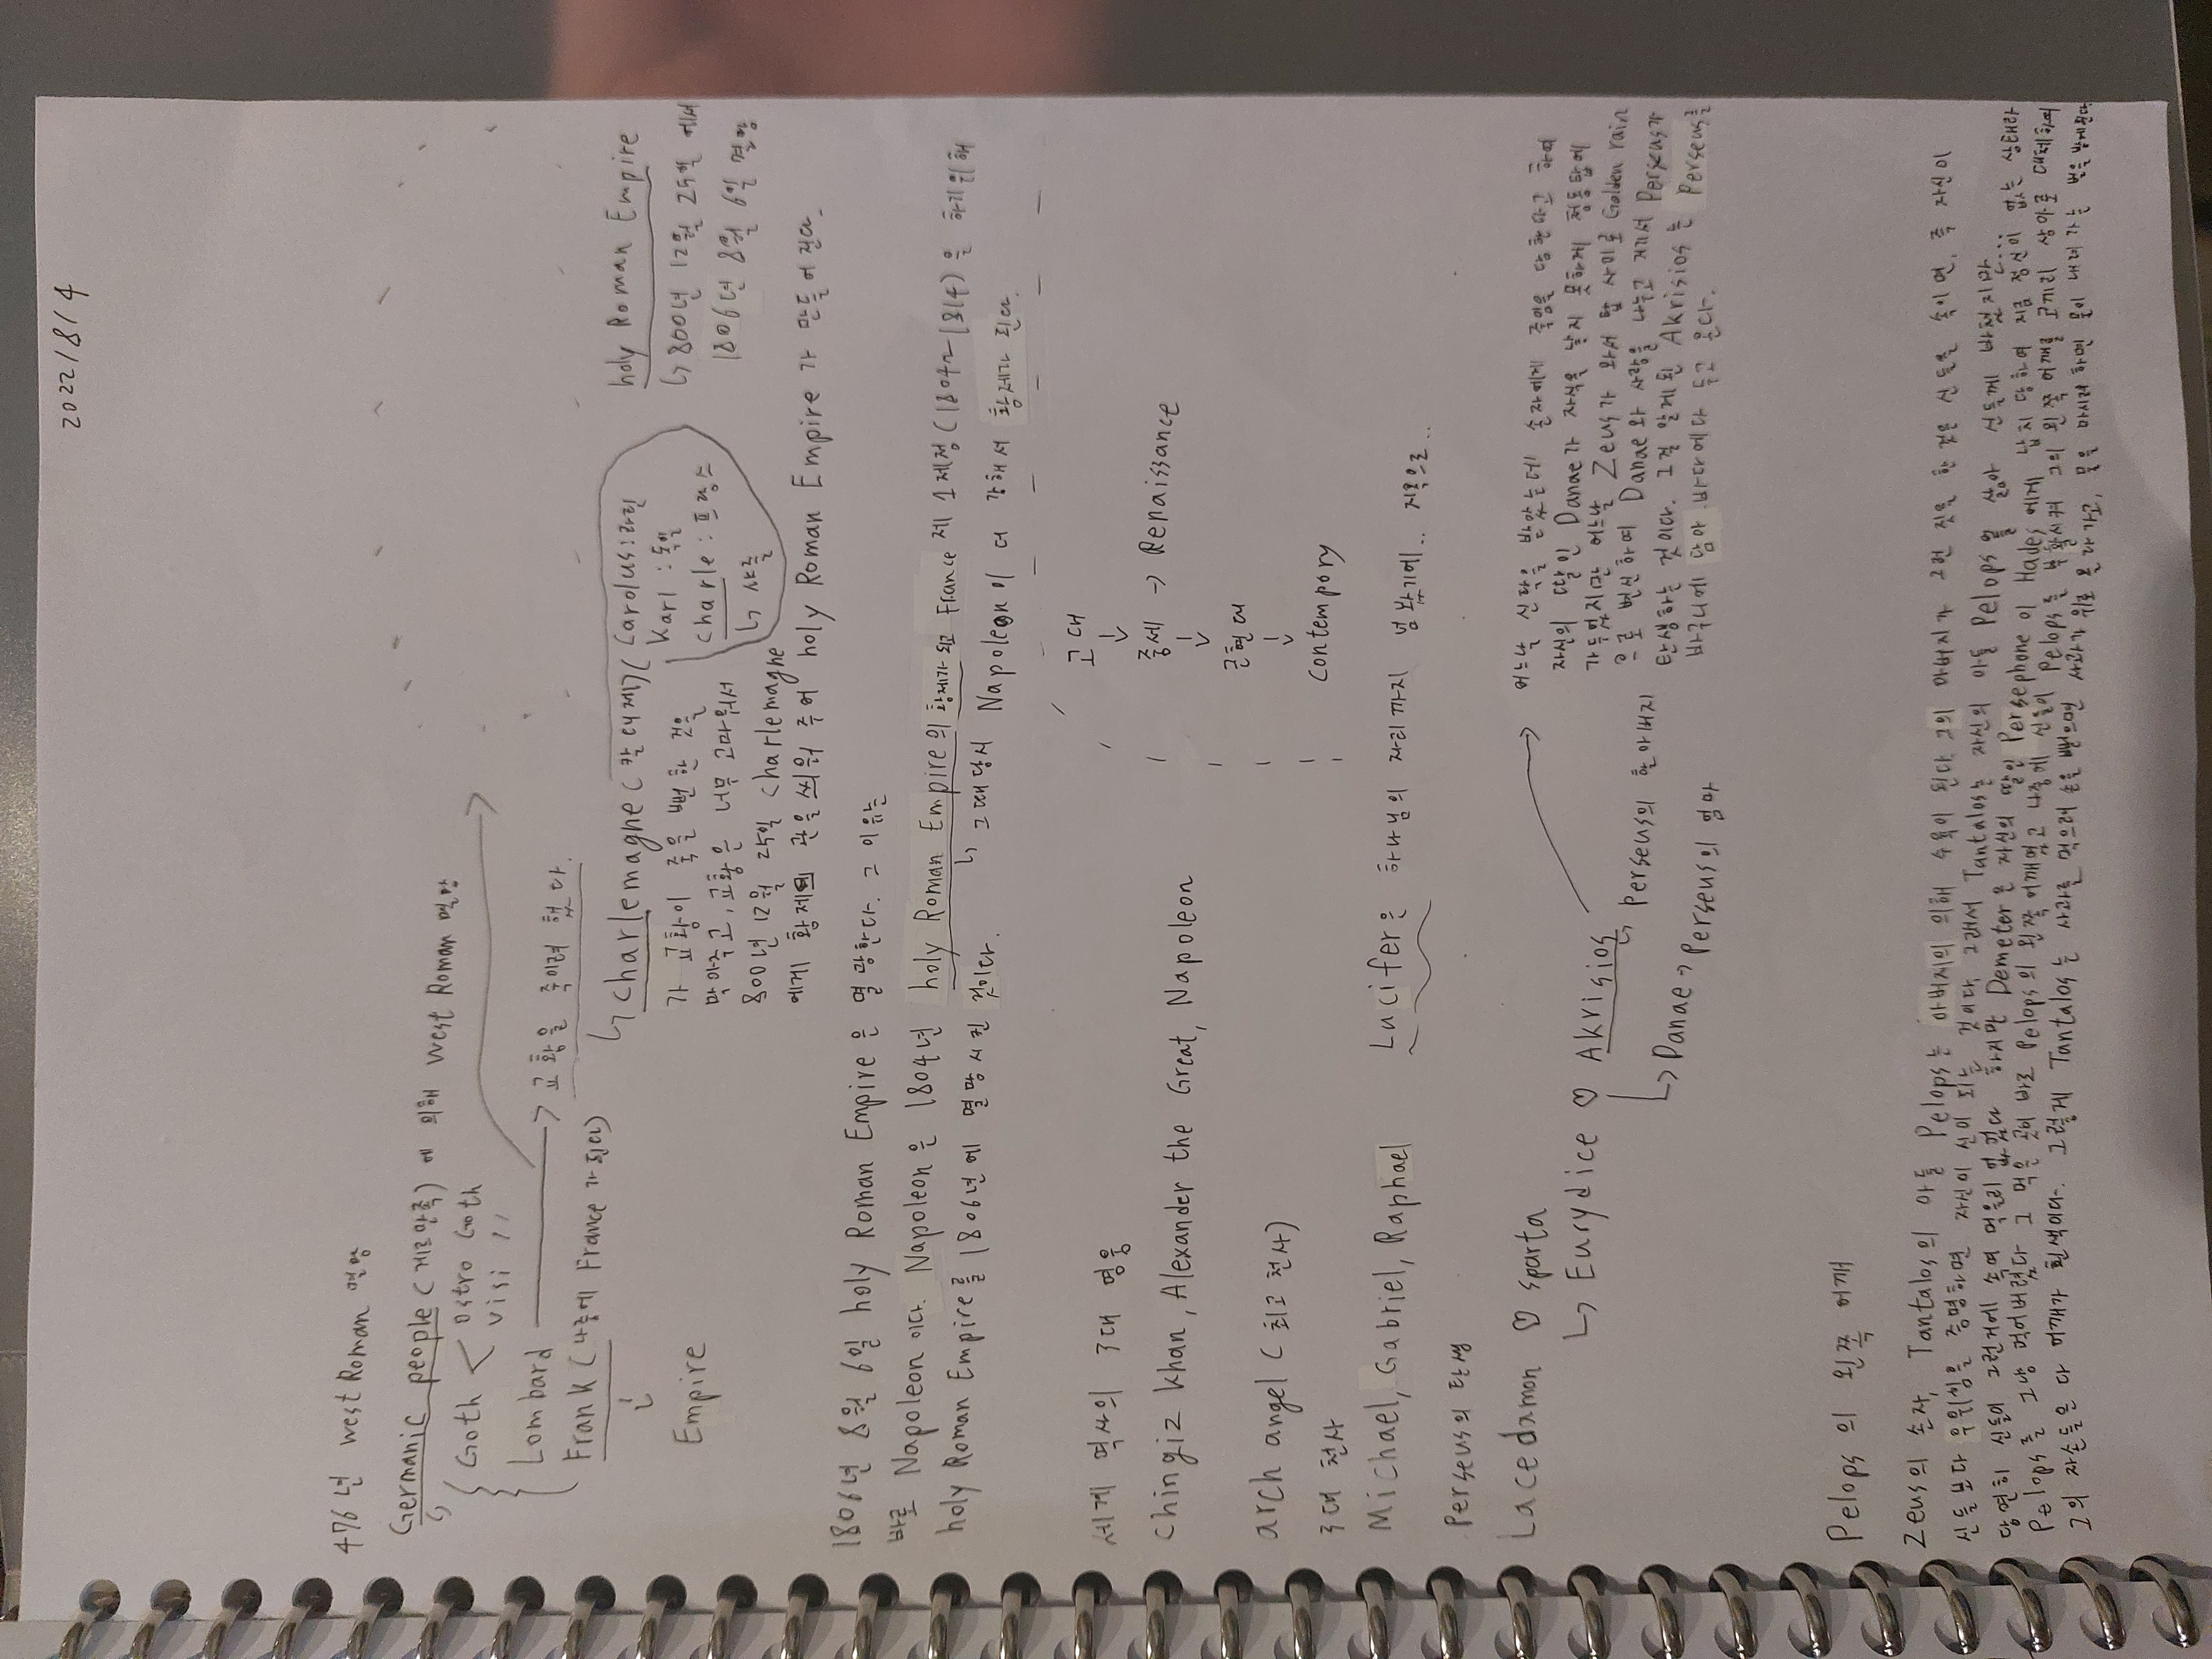 2022/8/4
476년 west Roman 멸망
Germanic people (게르만족) 에 의해 west Roman 멸망
↳ Goth < ostro Goth
visi 〃
Lombard → 교황을 죽이려 했다.
Frank (나중에 France가 된다)
↓
Empire
↳ charlemagne (칸 대제) (Carolus: 라틴
Karl : 독일
charle : 프랑스
↳ 샤를
가 교황이 죽을 뻔 한 것을
막아주고, 교황은 너무 고마워서
800년 12월 25일 charlemagne
에게 황제의 관을 씌워 주어 holy Roman Empire 가 만들어 진다.
holy Roman Empire
↳ 800년 12월 25일 에서
1806년 8월 6일 멸망
1806년 8월 6일 holy Roman Empire 은 멸망한다. 그 이유는
바로 Napoleon 이다. Napoleon은 1804년 holy Roman Empire의 황제가 되고 France 제 1 제정(1804~1814)을 하기위해
holy Roman Empire를 1806년에 멸망시킨 것이다. ↳ 그때당시 Napoleon이 더 강해서 황제가 된다.
세계 역사의 3대 영웅
chingiz khan, Alexander the Great, Napoleon
고대
↓
중세 → Renaissance
↓
근현대
↓
contempory
arch angel (최고 천사)
3대 천사
Michael, Gabriel, Raphael
Lucifer은 하나님의 자리까지 넘보기에.. 지옥으로..
Perseus의 탄생
Lacedamon ♡ sparta
↳ Eurydice ♡ Akrisios
↳ Perseus의 할아버지
↳ Danae → Perseus의 엄마
어느날 신탁을 받았는데 손자에게 죽임을 당한다고 하여
자신의 딸인 Danae가 자식을 낳지 못하게 청동탑에
가두었지만 어느날 Zeus가 와서 탑 사이로 Golden rain
으로 변신하여 Danae와 사랑을 나누고 거기서 Perseus가
탄생하는 것이다. 그걸 알게된 Akrisios는 Perseus를
바구니에 담아 바다에다 두고 온다.
Pelops의 왼쪽 어깨
Zeus의 손자, Tantalos의 아들 Pelops는 아버지의 의해 수육이 된다 그의 아버지가 그런 짓을 한 것은 신들을 속이면, 즉 자신이
신들보다 우위임을 증명하면 자신이 신이 되는 것이다. 그래서 Tantalos는 자신의 아들 Pelops를 삶아 신들께 바쳤지만
당연히 신들이 그런거에 속여 먹을리 없었다 하지만 Demeter은 자신의 딸인 Persephone이 Hades에게 납치 당하여 지금 정신이 없는 상태라
Pelops를 그냥 먹어버렸다. 그 먹은 곳이 바로 Pelops의 왼쪽 어깨였고 나중에 신들이 Pelops를 부활시켜 그의 왼쪽 어깨를 코끼리 상아로 대체하여
그의 자손들은 다 어깨가 흰색이다. 그렇게 Tantalos는 사과를 먹으려 손을 뻗으면 사과가 위로 올라가고, 물을 마시려 하면 물이 내려가는 벌을 받게된다.